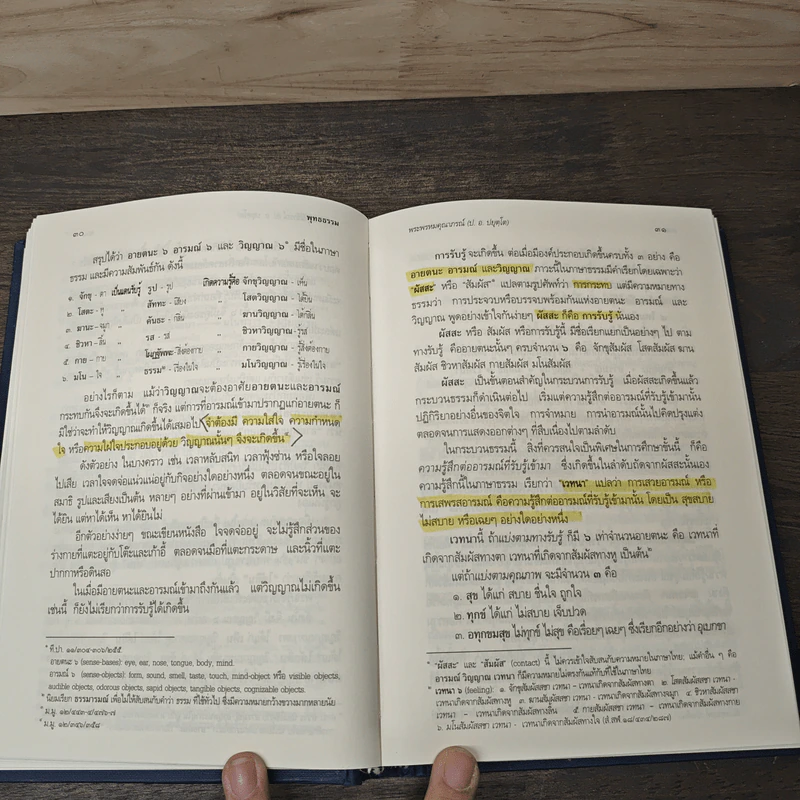 ๓๐
พุทธธรรม
สรุปได้ว่า อายตนะ ๖ อารมณ์ ๖ และ วิญญาณ ๖* มีชื่อในภาษา
ธรรม และมีความสัมพันธ์กัน ดังนี้
๑. จักขุ - ตา เป็นแดนรับรู้ รูป - รูป เกิดความรู้คือ จักขุวิญญาณ - เห็น
๒. โสตะ - หู " สัททะ - เสียง " โสตวิญญาณ - ได้ยิน
๓. ฆานะ - จมูก " คันธะ - กลิ่น " ฆานวิญญาณ - ได้กลิ่น
๔. ชิวหา - ลิ้น " รส - รส " ชิวหาวิญญาณ - รู้รส
๕. กาย - กาย " โผฏฐัพพะ - สิ่งต้องกาย " กายวิญญาณ - รู้สิ่งต้องกาย
๖. มโน - ใจ " ธรรม* - เรื่องในใจ " มโนวิญญาณ - รู้เรื่องในใจ
อย่างไรก็ตาม แม้ว่าวิญญาณจะต้องอาศัยอายตนะและอารมณ์
กระทบกันจึงจะเกิดขึ้นได้* ก็จริง แต่การที่อารมณ์เข้ามาปรากฏแก่อายตนะ ก็
มิใช่ว่าจะทำให้วิญญาณเกิดขึ้นได้เสมอไป จำต้องมี ความใส่ใจ ความกำหนด
ใจ หรือความใฝ่ใจประกอบอยู่ด้วย วิญญาณนั้นๆ จึงจะเกิดขึ้น*
ดังตัวอย่าง ในบางคราว เช่น เวลาหลับสนิท เวลาฟุ้งซ่าน หรือใจลอย
ไปเสีย เวลาใจจดจ่อแน่วแน่อยู่กับกิจอย่างใดอย่างหนึ่ง ตลอดจนขณะอยู่ใน
สมาธิ รูปและเสียงเป็นต้น หลายๆ อย่างที่ผ่านเข้ามา อยู่ในวิสัยที่จะเห็น จะ
ได้ยิน แต่หาได้เห็น หาได้ยินไม่
อีกตัวอย่างง่ายๆ ขณะเขียนหนังสือ ใจจดจ่ออยู่ จะไม่รู้สึกส่วนของ
ร่างกายที่แตะอยู่กับโต๊ะและเก้าอี้ ตลอดจนมือที่แตะกระดาษ และนิ้วที่แตะ
ปากกาหรือดินสอ
ในเมื่อมีอายตนะและอารมณ์เข้ามาถึงกันแล้ว แต่วิญญาณไม่เกิดขึ้น
เช่นนี้ ก็ยังไม่เรียกว่าการรับรู้ได้เกิดขึ้น
* ที.ปา. ๑๑/๓๐๔-๓๐๖/๒๕๕
อายตนะ ๖ (sense-bases): eye, ear, nose, tongue, body, mind.
อารมณ์ ๖ (sense-objects): form, sound, smell, taste, touch, mind-object หรือ visible objects,
audible objects, odorous objects, sapid objects, tangible objects, cognizable objects.
* นิยมเรียก ธรรมารมณ์ เพื่อไม่ให้สับสนกับคำว่า ธรรม ที่ใช้ทั่วไป ซึ่งมีความหมายกว้างขวางมากหลายนัย
* ม.มู. ๑๒/๔๔๓-๔/๔๗๖-๗
* ม.มู. ๑๒/๓๔๖/๓๕๘
พระพรหมคุณาภรณ์ (ป. อ. ปยุตฺโต)
๓๑
การรับรู้ จะเกิดขึ้น ต่อเมื่อมีองค์ประกอบเกิดขึ้นครบทั้ง ๓ อย่าง คือ
อายตนะ อารมณ์ และวิญญาณ ภาวะนี้ในภาษาธรรมมีคำเรียกโดยเฉพาะว่า
"ผัสสะ" หรือ "สัมผัส" แปลตามรูปศัพท์ว่า การกระทบ แต่มีความหมายทาง
ธรรมว่า การประจวบหรือบรรจบพร้อมกันแห่งอายตนะ อารมณ์ และ
วิญญาณ พูดอย่างเข้าใจกันง่ายๆ ผัสสะ ก็คือ การรับรู้ นั่นเอง
ผัสสะ หรือ สัมผัส หรือการรับรู้นี้ มีชื่อเรียกแยกเป็นอย่างๆ ไป ตาม
ทางรับรู้ คืออายตนะนั้นๆ ครบจำนวน ๖ คือ จักขุสัมผัส โสตสัมผัส ฆาน
สัมผัส ชิวหาสัมผัส กายสัมผัส มโนสัมผัส
ผัสสะ เป็นขั้นตอนสำคัญในกระบวนการรับรู้ เมื่อผัสสะเกิดขึ้นแล้ว
กระบวนธรรมก็ดำเนินต่อไป เริ่มแต่ความรู้สึกต่ออารมณ์ที่รับรู้เข้ามานั้น
ปฏิกิริยาอย่างอื่นของจิตใจ การจำหมาย การนำอารมณ์นั้นไปคิดปรุงแต่ง
ตลอดจนการแสดงออกต่างๆ ที่สืบเนื่องไปตามลำดับ
ในกระบวนธรรมนี้ สิ่งที่ควรสนใจเป็นพิเศษในการศึกษาขั้นนี้ ก็คือ
ความรู้สึกต่ออารมณ์ที่รับรู้เข้ามา ซึ่งเกิดขึ้นในลำดับถัดจากผัสสะนั่นเอง
ความรู้สึกนี้ในภาษาธรรม เรียกว่า "เวทนา" แปลว่า การเสวยอารมณ์ หรือ
การเสพรสอารมณ์ คือความรู้สึกต่ออารมณ์ที่รับรู้เข้ามานั้น โดยเป็น สุขสบาย
ไม่สบาย หรือเฉยๆ อย่างใดอย่างหนึ่ง
เวทนานี้ ถ้าแบ่งตามทางรับรู้ ก็มี ๖ เท่าจำนวนอายตนะ คือ เวทนาที่
เกิดจากสัมผัสทางตา เวทนาที่เกิดจากสัมผัสทางหู เป็นต้น*
แต่ถ้าแบ่งตามคุณภาพ จะมีจำนวน ๓ คือ
๑. สุข ได้แก่ สบาย ชื่นใจ ถูกใจ
๒. ทุกข์ ได้แก่ ไม่สบาย เจ็บปวด
๓. อทุกขมสุข ไม่ทุกข์ ไม่สุข คือเรื่อยๆ เฉยๆ ซึ่งเรียกอีกอย่างว่า อุเบกขา
* "ผัสสะ" และ "สัมผัส" (contact) นี้ ไม่ควรเข้าใจสับสนกับความหมายในภาษาไทย. แม้คำอื่น ๆ คือ
อารมณ์ วิญญาณ เวทนา ก็มีความหมายไม่ตรงกันแท้กับที่ใช้ในภาษาไทย
* เวทนา ๖ (feeling): ๑. จักขุสัมผัสสชา เวทนา - เวทนาเกิดจากสัมผัสทางตา ๒. โสตสัมผัสสชา เวทนา -
เวทนาเกิดจากสัมผัสทางหู ๓. ฆานสัมผัสสชา เวทนา - เวทนาเกิดจากสัมผัสทางจมูก ๔. ชิวหาสัมผัสสชา
เวทนา - เวทนาเกิดจากสัมผัสทางลิ้น ๕. กายสัมผัสสชา เวทนา - เวทนาเกิดจากสัมผัสทางกาย
๖. มโนสัมผัสสชา เวทนา - เวทนาเกิดจากสัมผัสทางใจ (สํ.สฬ.๑๘/๔๓๔/๒๘๗)